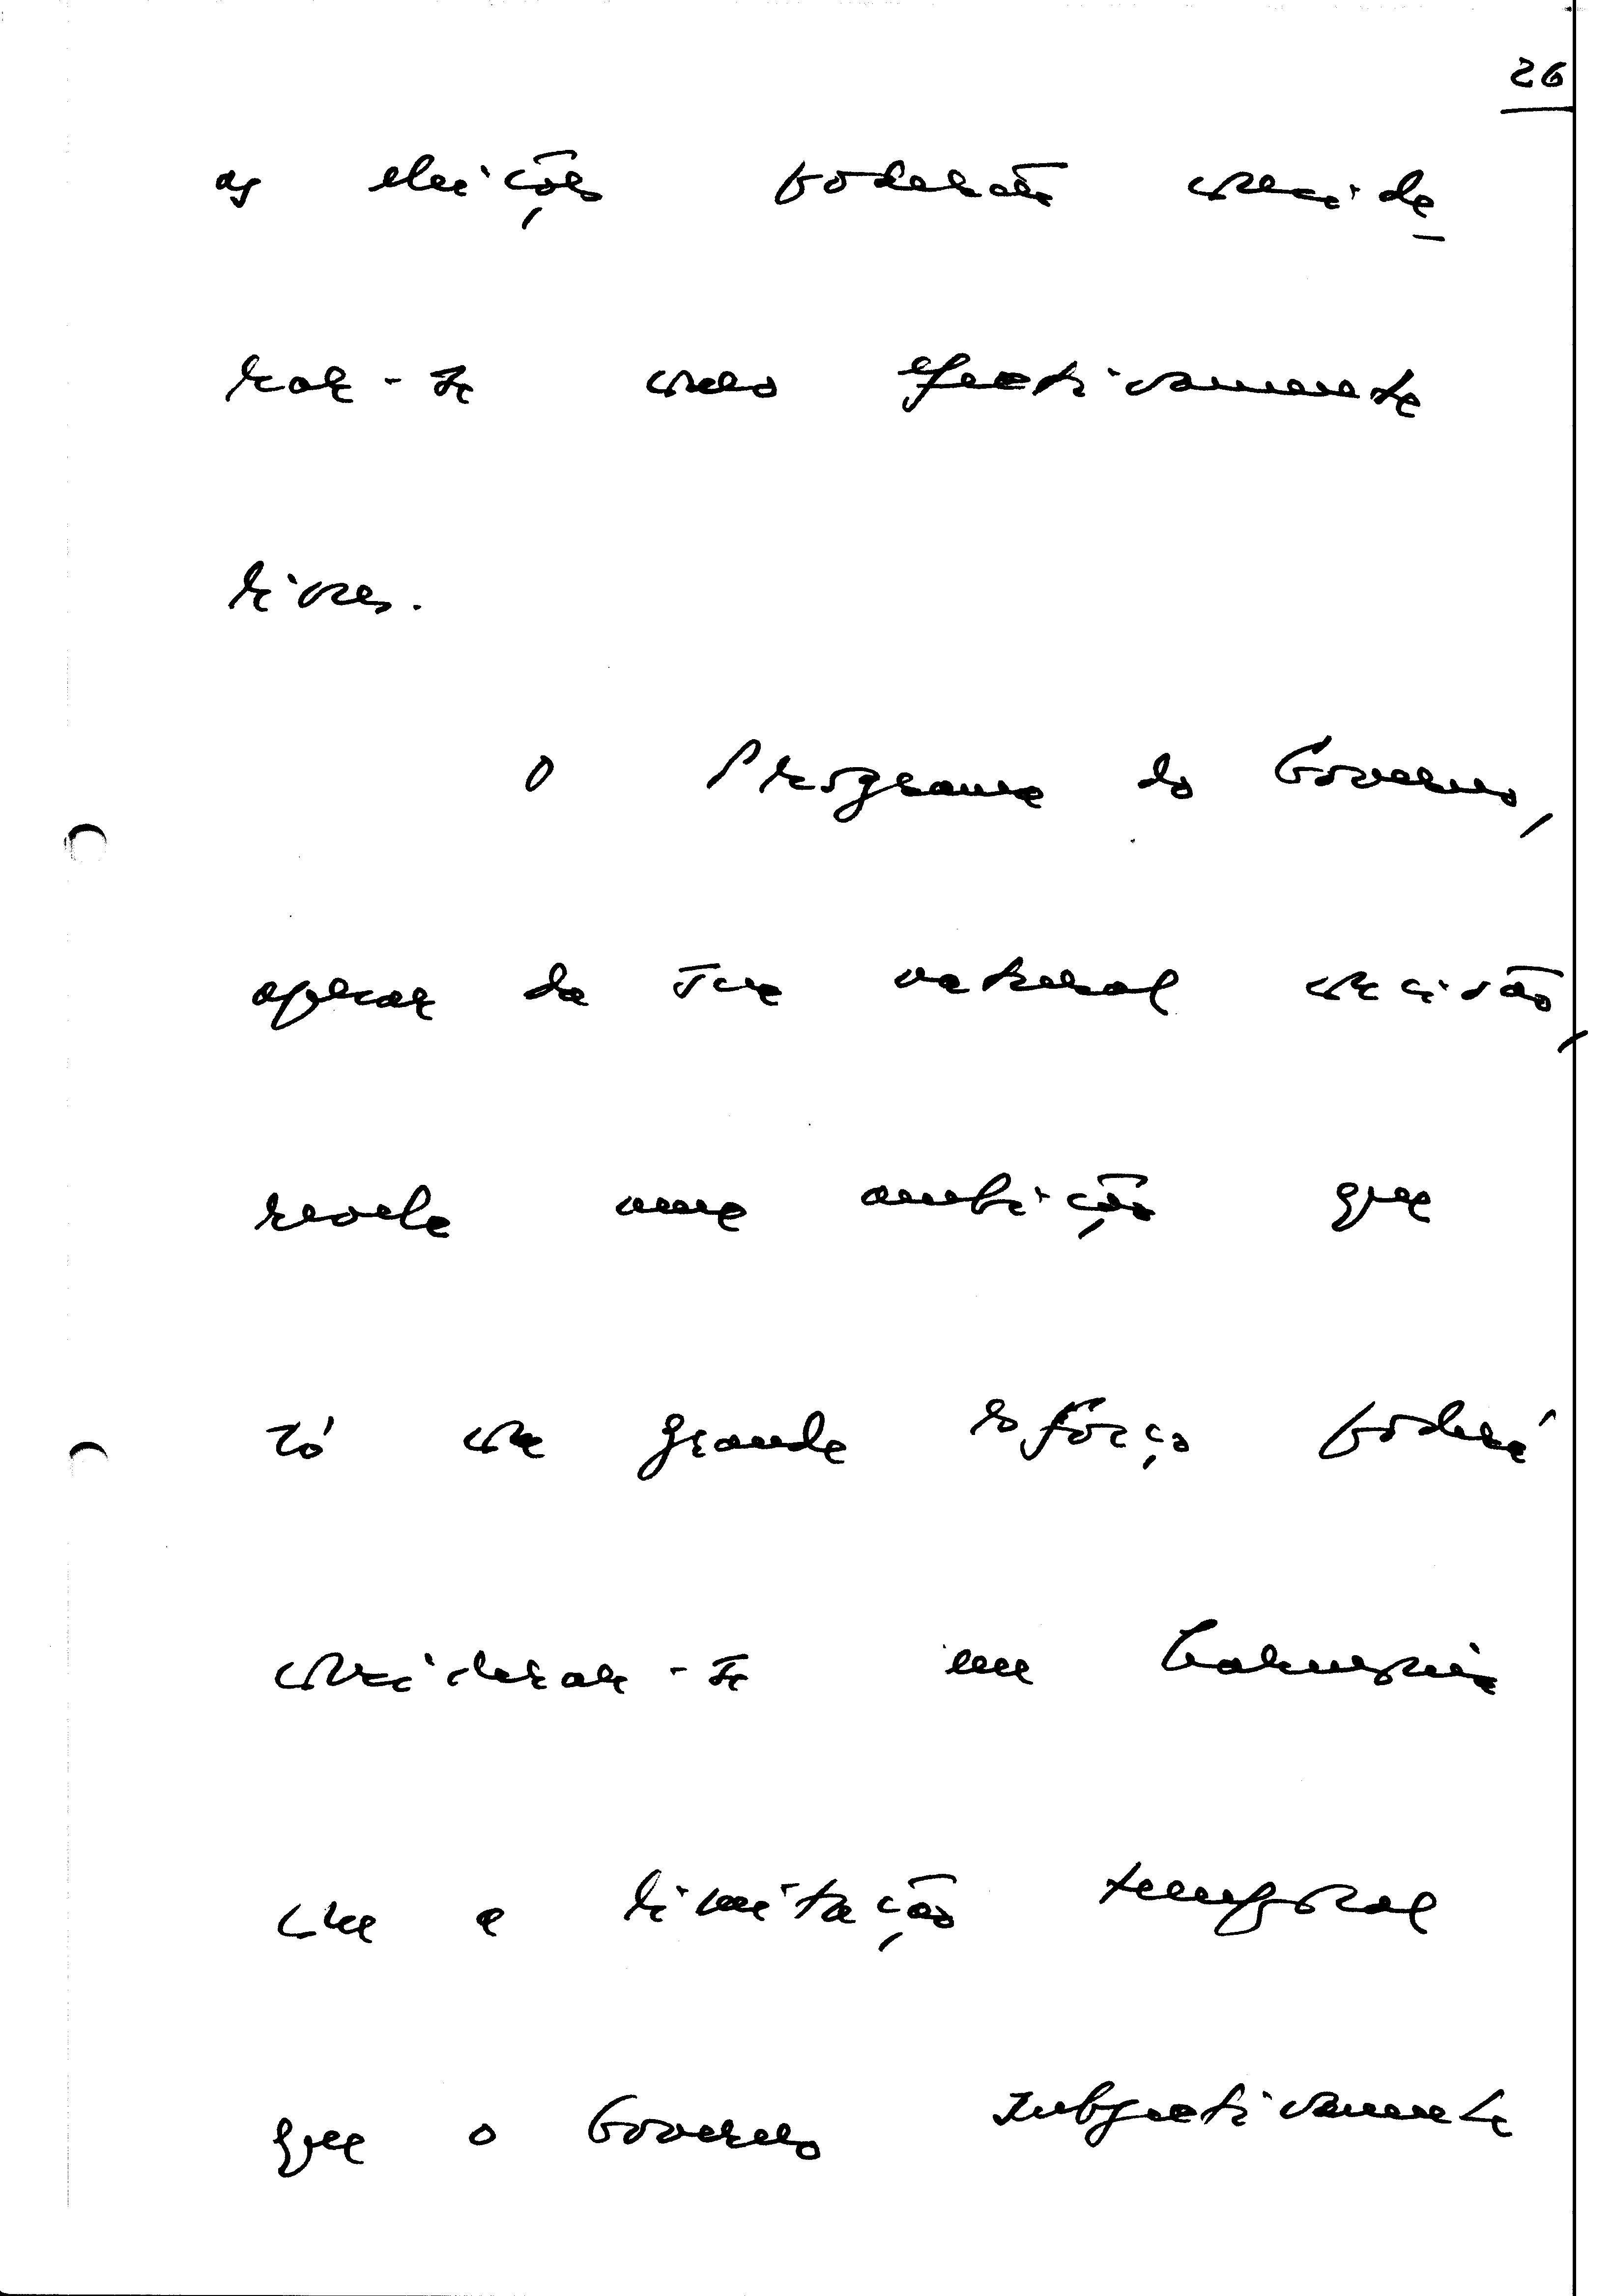 26
as eleições poderão conside
rar-se como efectivamente
livres.
O Programa do Governo,
apesar da sua natural concisão,
revela uma ambição que
só com grande esforço poderá
considerar-se em harmonia
com a limitação temporal
que o Governo subjectivamente